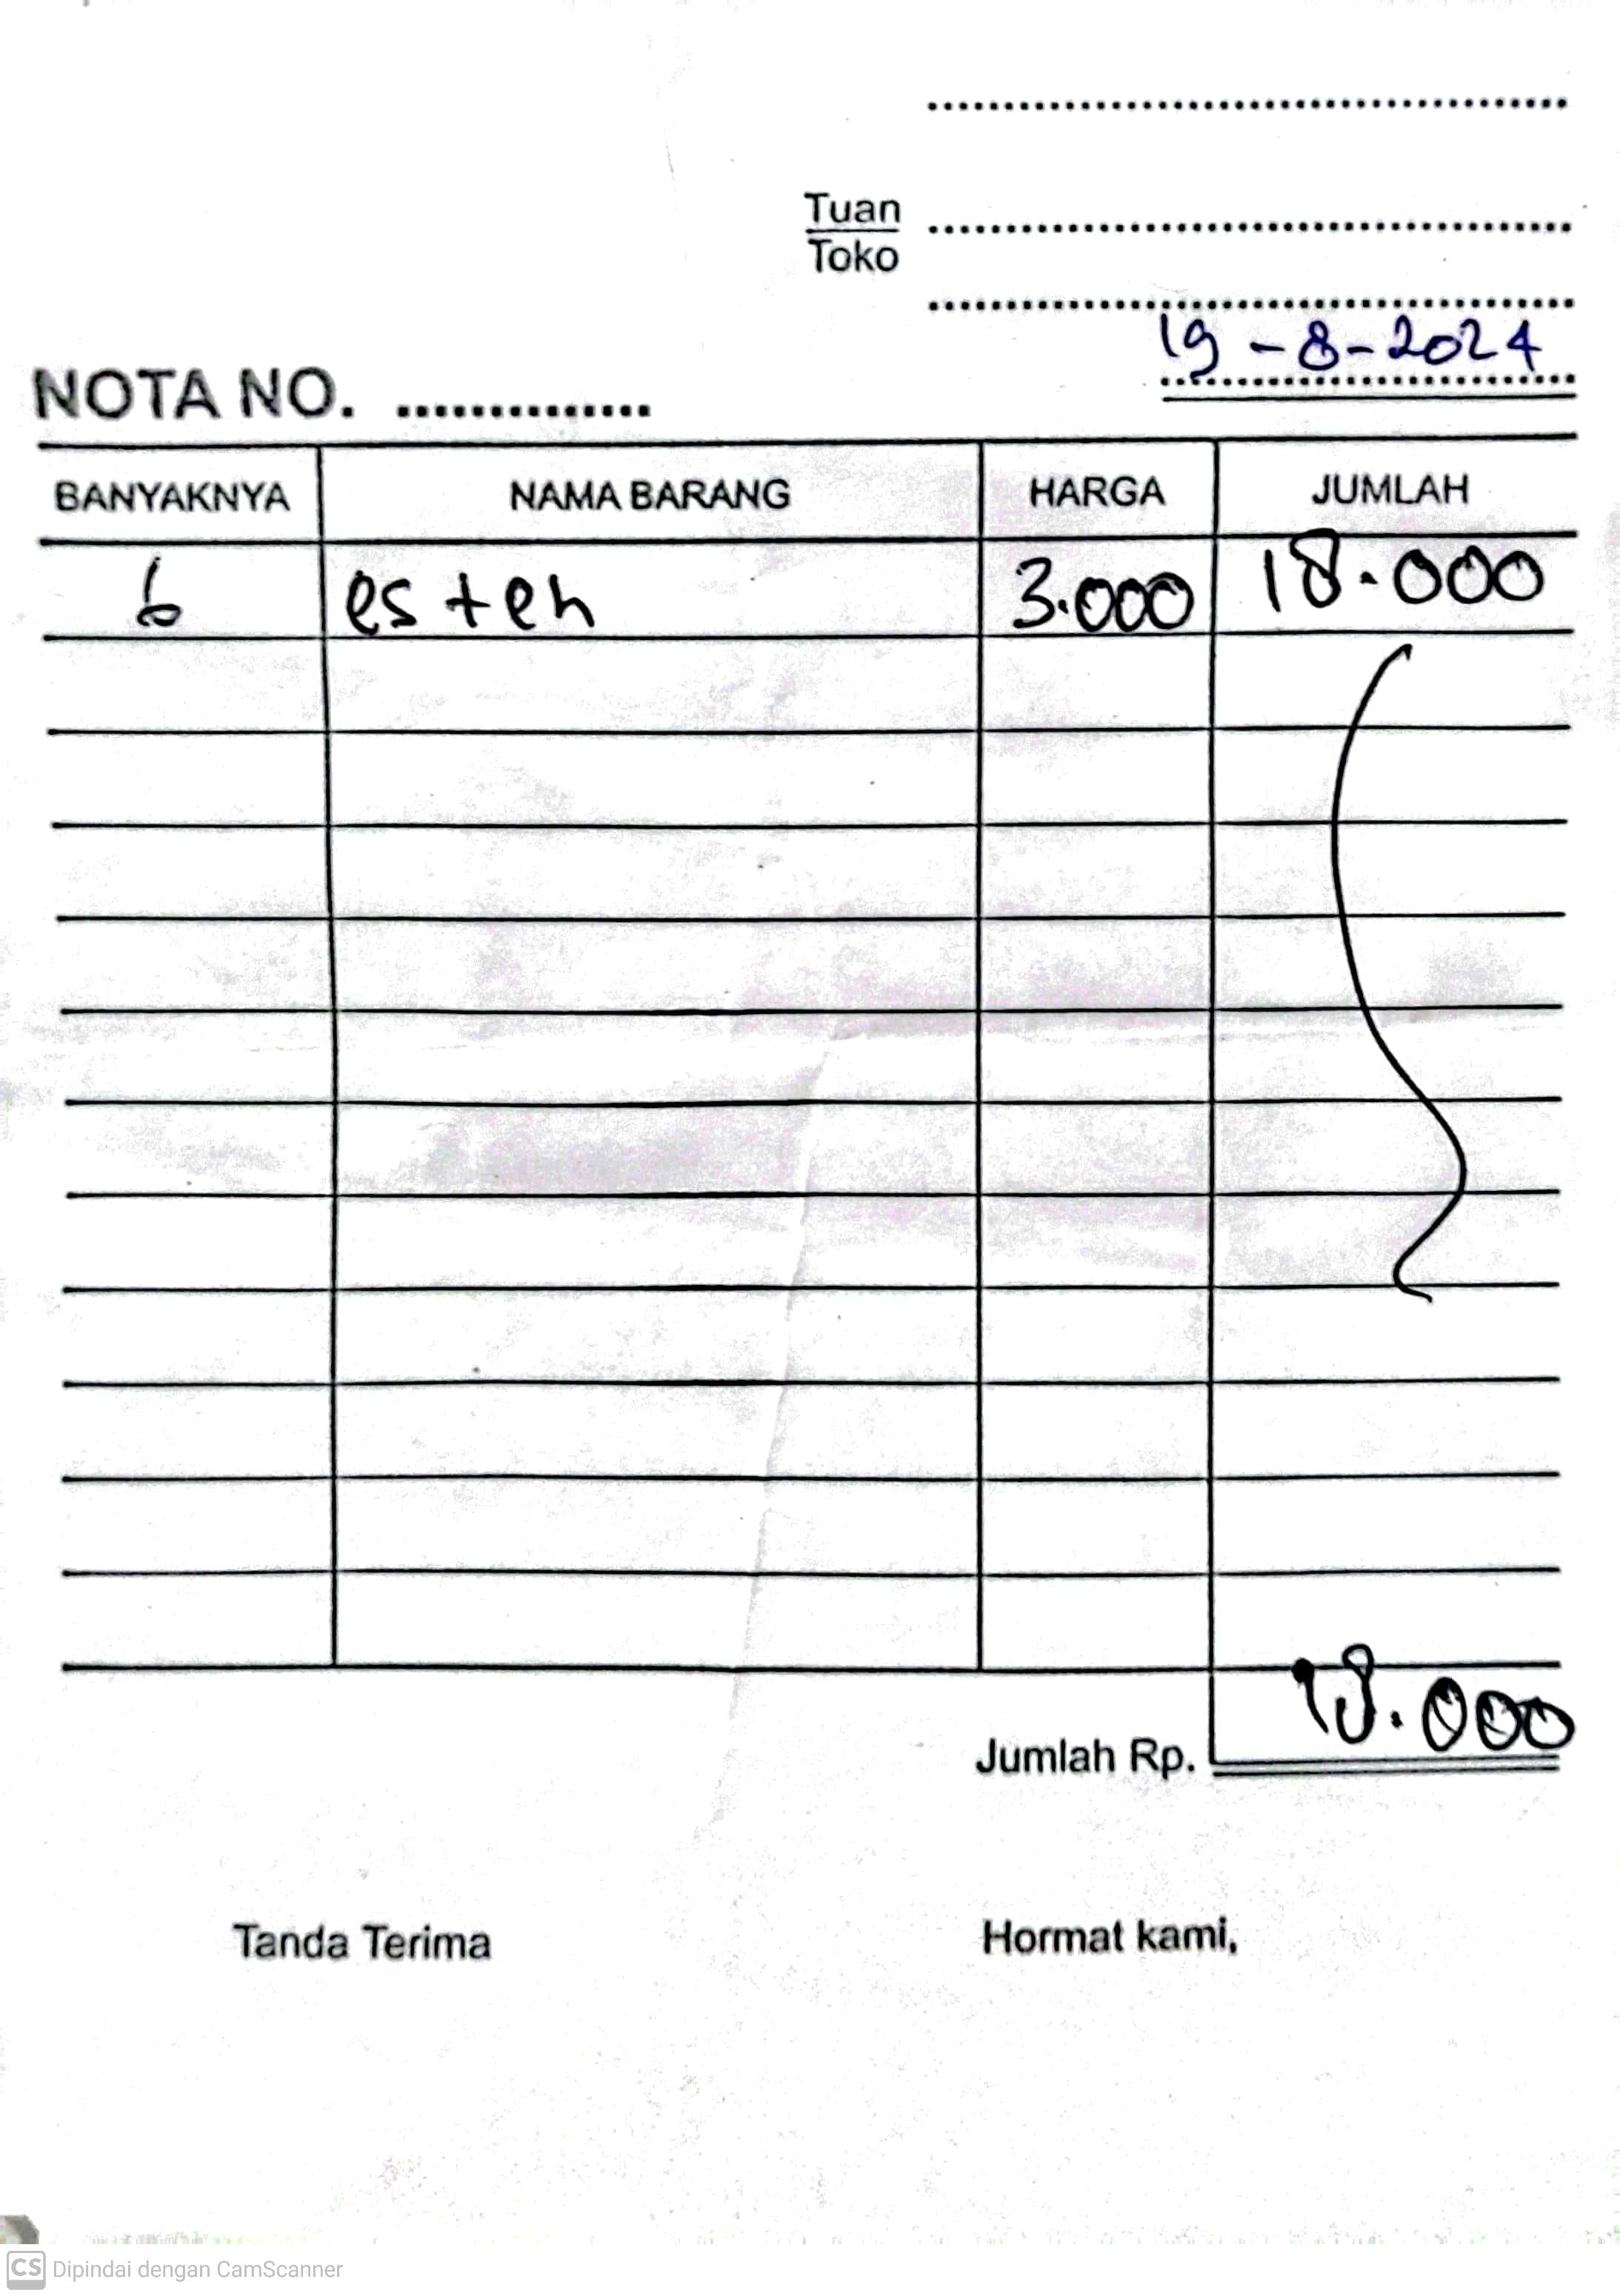 Tuan
Toko
19 - 8 - 2024
NOTA NO. ..............
BANYAKNYA NAMA BARANG HARGA JUMLAH
6 es teh 3.000 18.000
Jumlah Rp. 18.000
Tanda Terima Hormat kami,
CS Dipindai dengan CamScanner